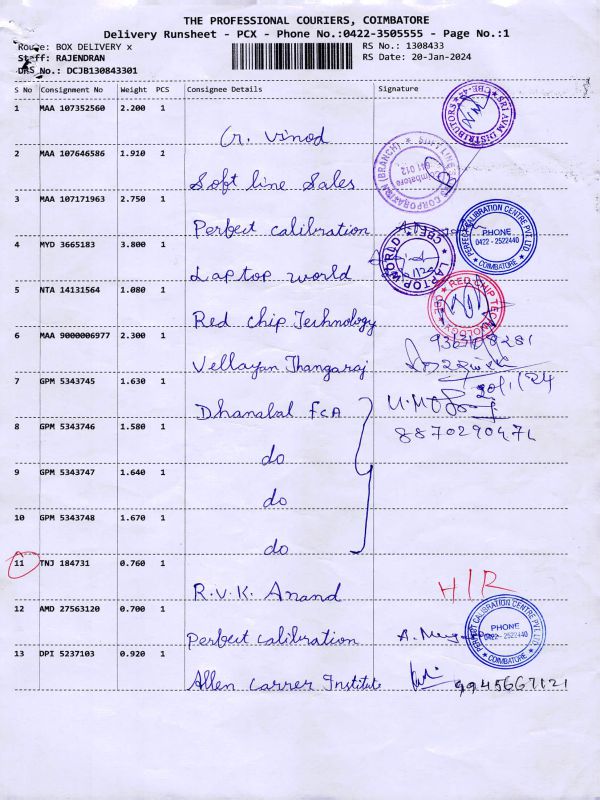 THE PROFESSIONAL COURIERS, COIMBATORE
Delivery Runsheet - PCX - Phone No.:0422-3505555 - Page No.:1
Route: BOX DELIVERY x RS No.: 1308433
Staff: RAJENDRAN RS Date: 20-Jan-2024
DRS No.: DCJB130843301
S No Consignment No Weight PCS Consignee Details Signature
1 MAA 107352560 2.200 1
G. Vinod
SRI AVM DISTRIBUTORS CBE-45
2 MAA 107646586 1.910 1
Soft line Sales
CORPORATION (BRANCH) Coimbatore 641 012
3 MAA 107171963 2.750 1
Perfect calibration
PERFECT CALIBRATION CENTRE PVT LTD COIMBATORE PHONE 0422 - 2522440
4 MYD 3665183 3.800 1
Laptop world
LAPTOP WORLD CBE
5 NTA 14131564 1.080 1
Red chip Technology
RED CHIP TECHNOLOGY CBE
6 MAA 9000006977 2.300 1
Vellayan Thangaraj
20/1/24
7 GPM 5343745 1.630 1
Dhanabal FCA
8870290471
8 GPM 5343746 1.580 1
do
9 GPM 5343747 1.640 1
do
10 GPM 5343748 1.670 1
do
11 TNJ 184731 0.760 1
R.V.K. Anand H/R
12 AMD 27563120 0.700 1
Perfect calibration
PERFECT CALIBRATION CENTRE PVT LTD COIMBATORE PHONE 0422 - 2522440
13 DPI 5237103 0.920 1
Allen Carrer Institute 9945667121